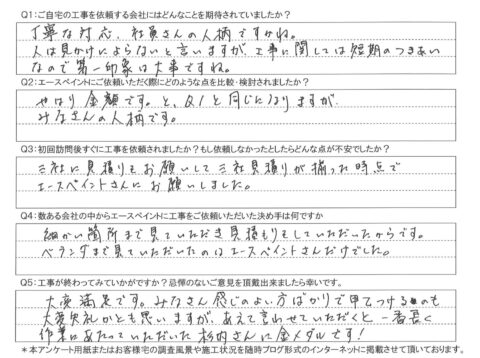 Q1：ご自宅の工事を依頼する会社にはどんなことを期待されていましたか？
丁寧な対応、社員さんの人柄ですかね。
人は見かけによらないと言いますが、工事に関しては短期のつきあい
なので第一印象は大事ですね。
Q2：エースペイントにご依頼いただく際にどのような点を比較・検討されましたか？
やはり金額です。と、Q1と同じになりますが、
みなさんの人柄です。
Q3：初回訪問後すぐに工事を依頼されましたか？もし依頼しなかったとしたらどんな点が不安でしたか？
三社に見積りをお願いして三社見積りが揃った時点で
エースペイントさんにお願いしました。
Q4：数ある会社の中からエースペイントに工事をご依頼いただいた決め手は何ですか
細かい箇所まで見ていただき見積もりをしていただいたからです。
ベランダまで見ていただいたのはエースペイントさんだけでした。
Q5：工事が終わってみていかがですか？忌憚のないご意見を頂戴出来ましたら幸いです。
大変満足です。みなさん感じのよい方ばかりで甲乙つけるのも
大変失礼かとも思いますが、あえて言わせていただくと一番長く
作業にあたっていただいた さんに金メダルです！
＊本アンケート用紙またはお客様宅の調査風景や施工状況を随時ブログ形式のインターネットに掲載させて頂いております。